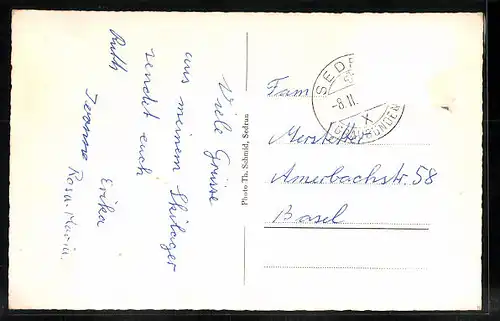 Viele Grüsse
aus meinem Skilager
sendet euch
Ruth
Yvonne
Erika
Rosa-Maria.
Photo Th. Schmid, Sedrun
SED
-8.II.
(GRAUBÜNDEN)
Fam
Merstetter
Amerbachstr. 58
Basel